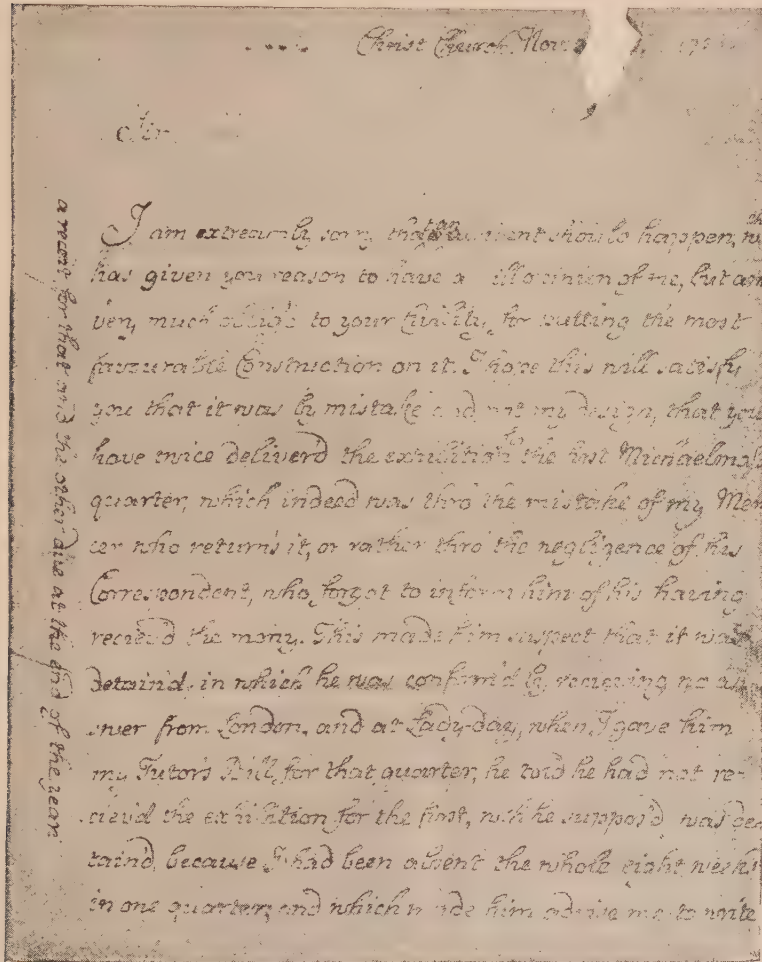 Christ Church Nov
Sir
I am extreamly sorry that an accident should happen, wch
has given you reason to have an ill opinion of me, but am
very much oblig'd to your Civility, for putting the most
favourable Construction on it. I hope this will satisfy
you that it was by mistake and not my design, that you
have twice deliver'd the exhibition for the first Michaelmas
quarter, which indeed was thro the mistake of my Mer
cer who returns it, or rather thro the negligence of his
Correspondent, who forgot to inform him of his having
reciev'd the mony. This made him suspect that it was
detain'd, in which he was confirm'd by recieving no an
swer from London, and at Lady-day, when I gave him
my Tutor's Bill for that quarter, he told he had not re-
ciev'd the exhibition for the first, wch he suppos'd was de
tain'd, because I had been absent the whole eight weeks
in one quarter, and which made him advise me to write
a receit for that and the other due at the end of the year